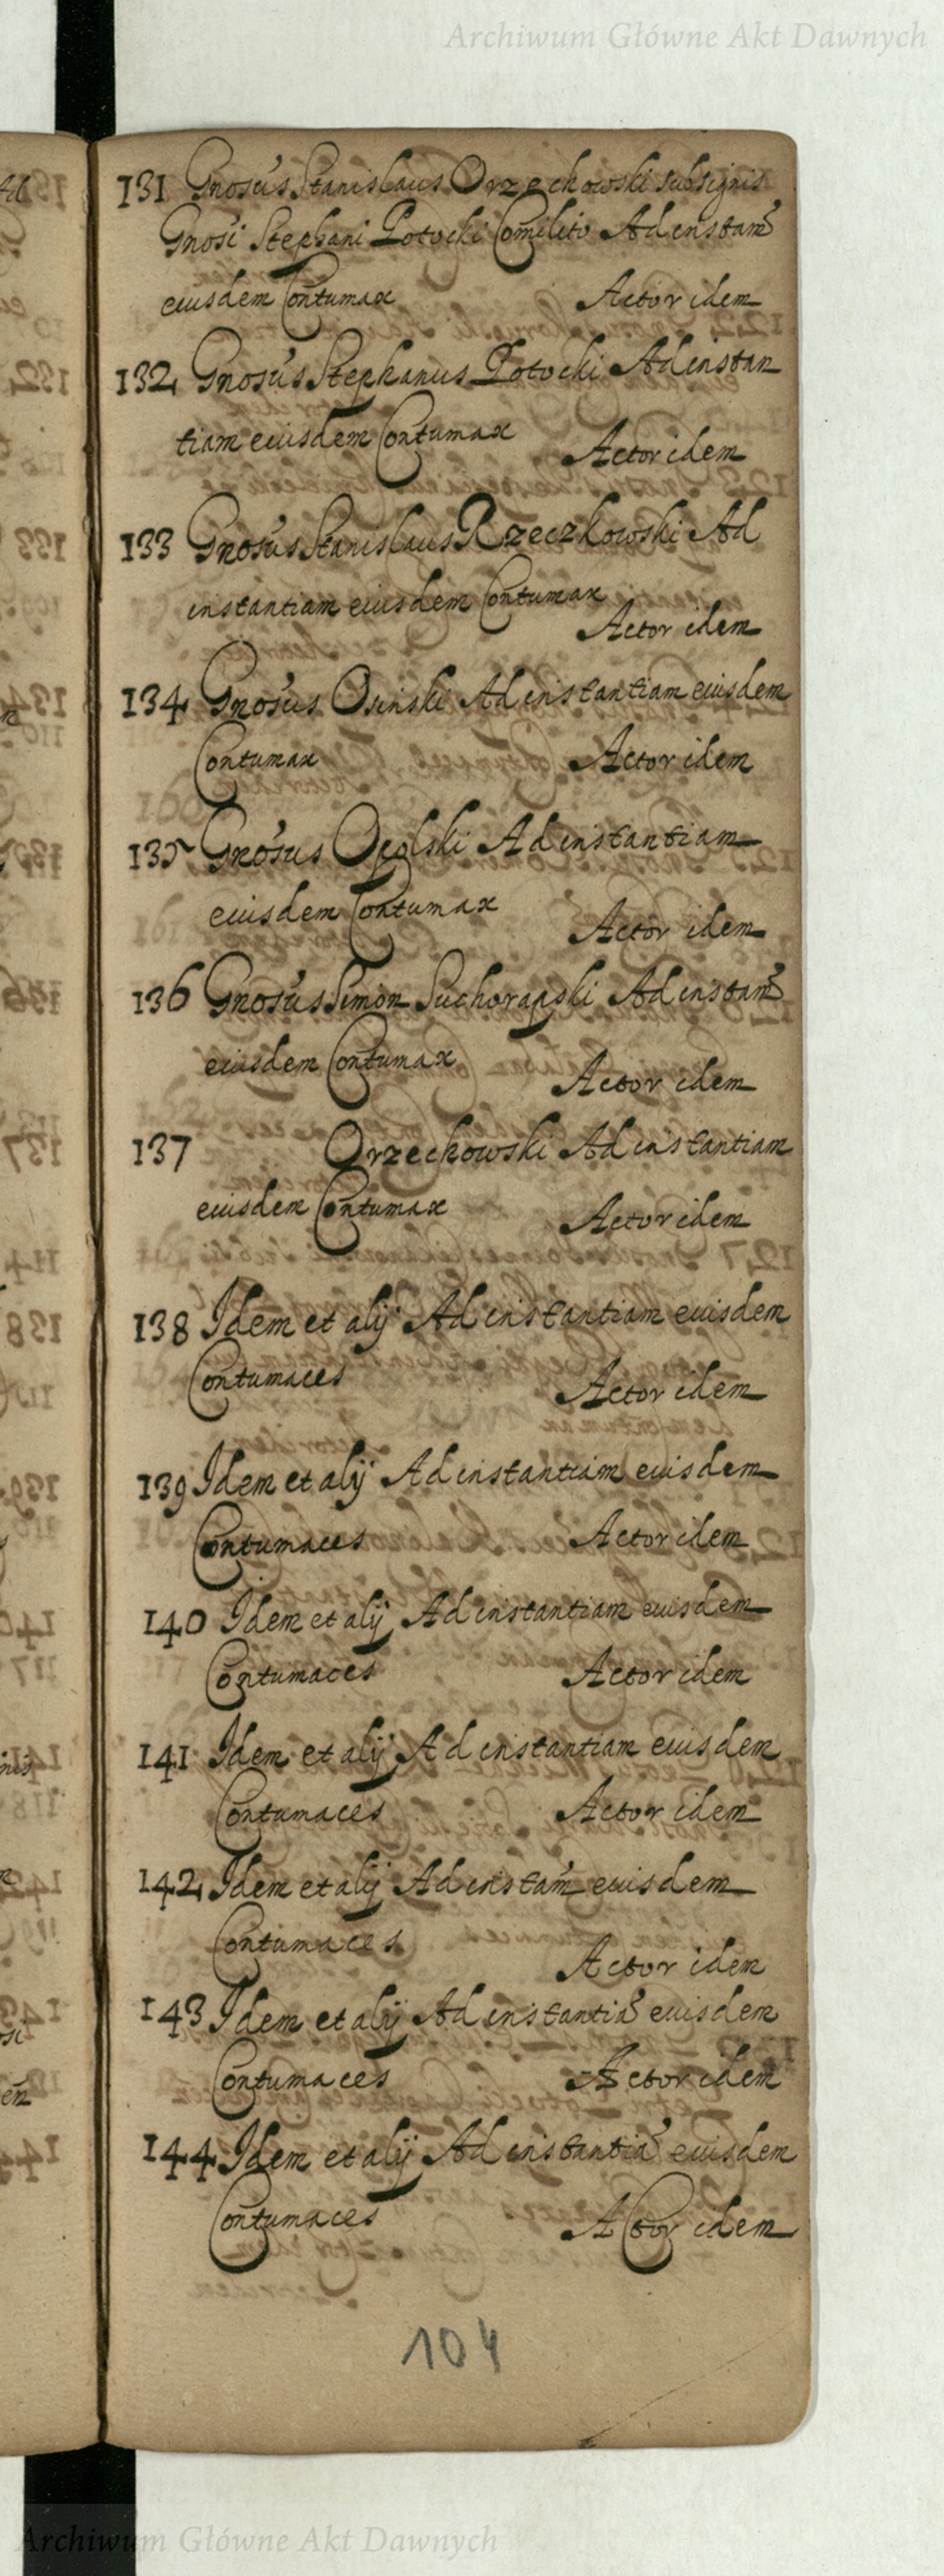 Archiwum Główne Akt Dawnych
131 Gnosus Stanislaus Orzechowski sub signis
Gnosi Stephani Potocki Comilito Ad instam
eiusdem Contumax Actor idem
132 Gnosus Stephanus Potocki Ad instan
tiam eiusdem Contumax Actor idem
133 Gnosus Stanislaus Rzeczkowski Ad
instantiam eiusdem Contumax
Actor idem
134 Gnosus Osinski Ad instantiam eiusdem
Contumax Actor idem
135 Gnosus Opolski Ad instantiam
eiusdem Contumax Actor idem
136 Gnosus Simon Suchorapski Ad instam
eiusdem Contumax Actor idem
137 Orzechowski Ad instantiam
eiusdem Contumax Actor idem
138 Idem et alij Ad instantiam eiusdem
Contumaces Actor idem
139 Idem et alij Ad instantiam eiusdem
Contumaces Actor idem
140 Idem et alij Ad instantiam eiusdem
Contumaces Actor idem
141 Idem et alij Ad instantiam eiusdem
Contumaces Actor idem
142 Idem et alij Ad instam eiusdem
Contumaces Actor idem
143 Idem et alij Ad instantia eiusdem
Contumaces Actor idem
144 Idem et alij Ad instantia eiusdem
Contumaces Actor idem
104
Archiwum Główne Akt Dawnych